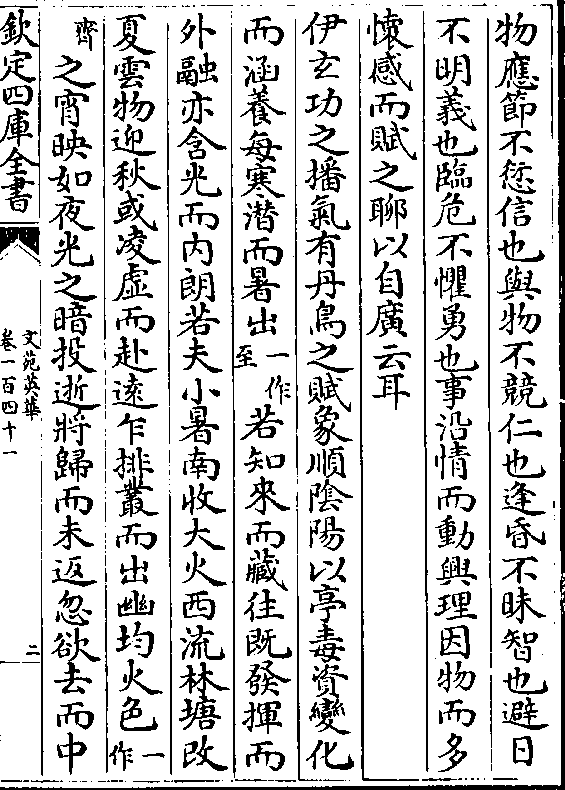 物應節不愆信也與物不競仁也逢昏不昧智也避日
不明義也臨危不懼勇也事沿情而動興理因物而多
懐感而賦之聊以自廣云耳
伊玄功之播氣有丹鳥之賦象順陰陽以亭毒資變化
而涵養每寒潛而暑出一作至若知來而藏往既發揮而
外融亦含光而内朗若夫小暑南收大火西流林塘改
夏雲物迎秋或凌虚而赴遠乍排叢而出幽均火色一作
齊之宵映如夜光之暗投逝將歸而未返忽欲去而中
欽定四庫全書
文苑英華
卷一百四十一
二